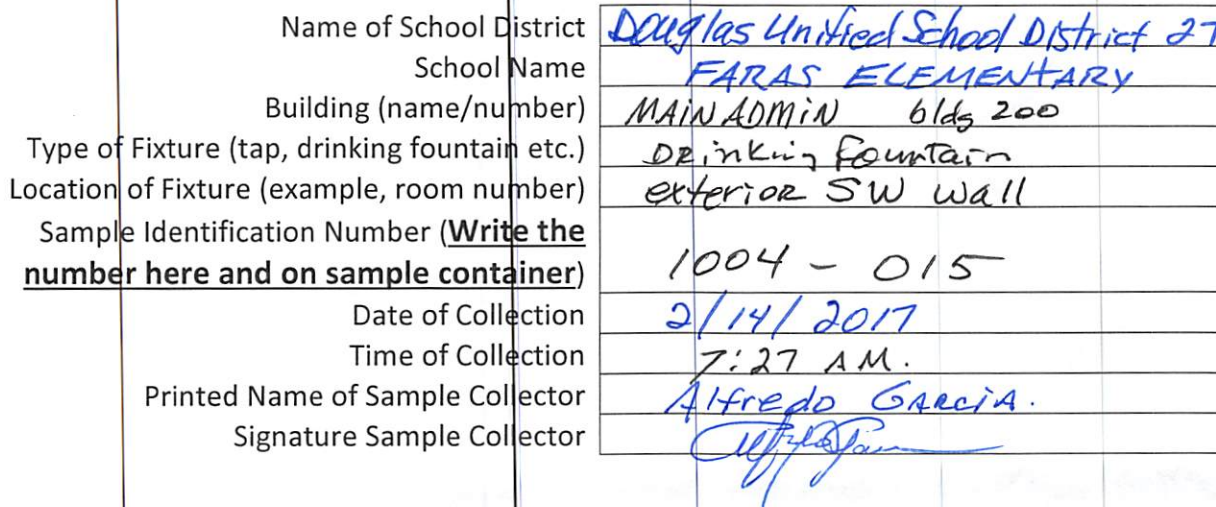 Name of School District Douglas Unified School District 27
School Name FARAS ELEMENTARY
Building (name/number) MAIN ADMIN bldg 200
Type of Fixture (tap, drinking fountain etc.) DRinking Fountain
Location of Fixture (example, room number) exterior SW Wall
Sample Identification Number (Write the
number here and on sample container) 1004 - 015
Date of Collection 2/14/2017
Time of Collection 7:27 AM.
Printed Name of Sample Collector Alfredo GARCIA.
Signature Sample Collector